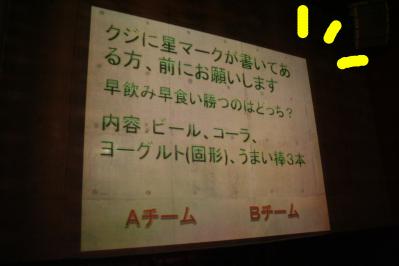 クジに星マークが書いてあ
る方、前にお願いします
早飲み早食い勝つのはどっち？
内容:ビール、コーラ、
ヨーグルト(固形)、うまい棒3本
Aチーム Bチーム